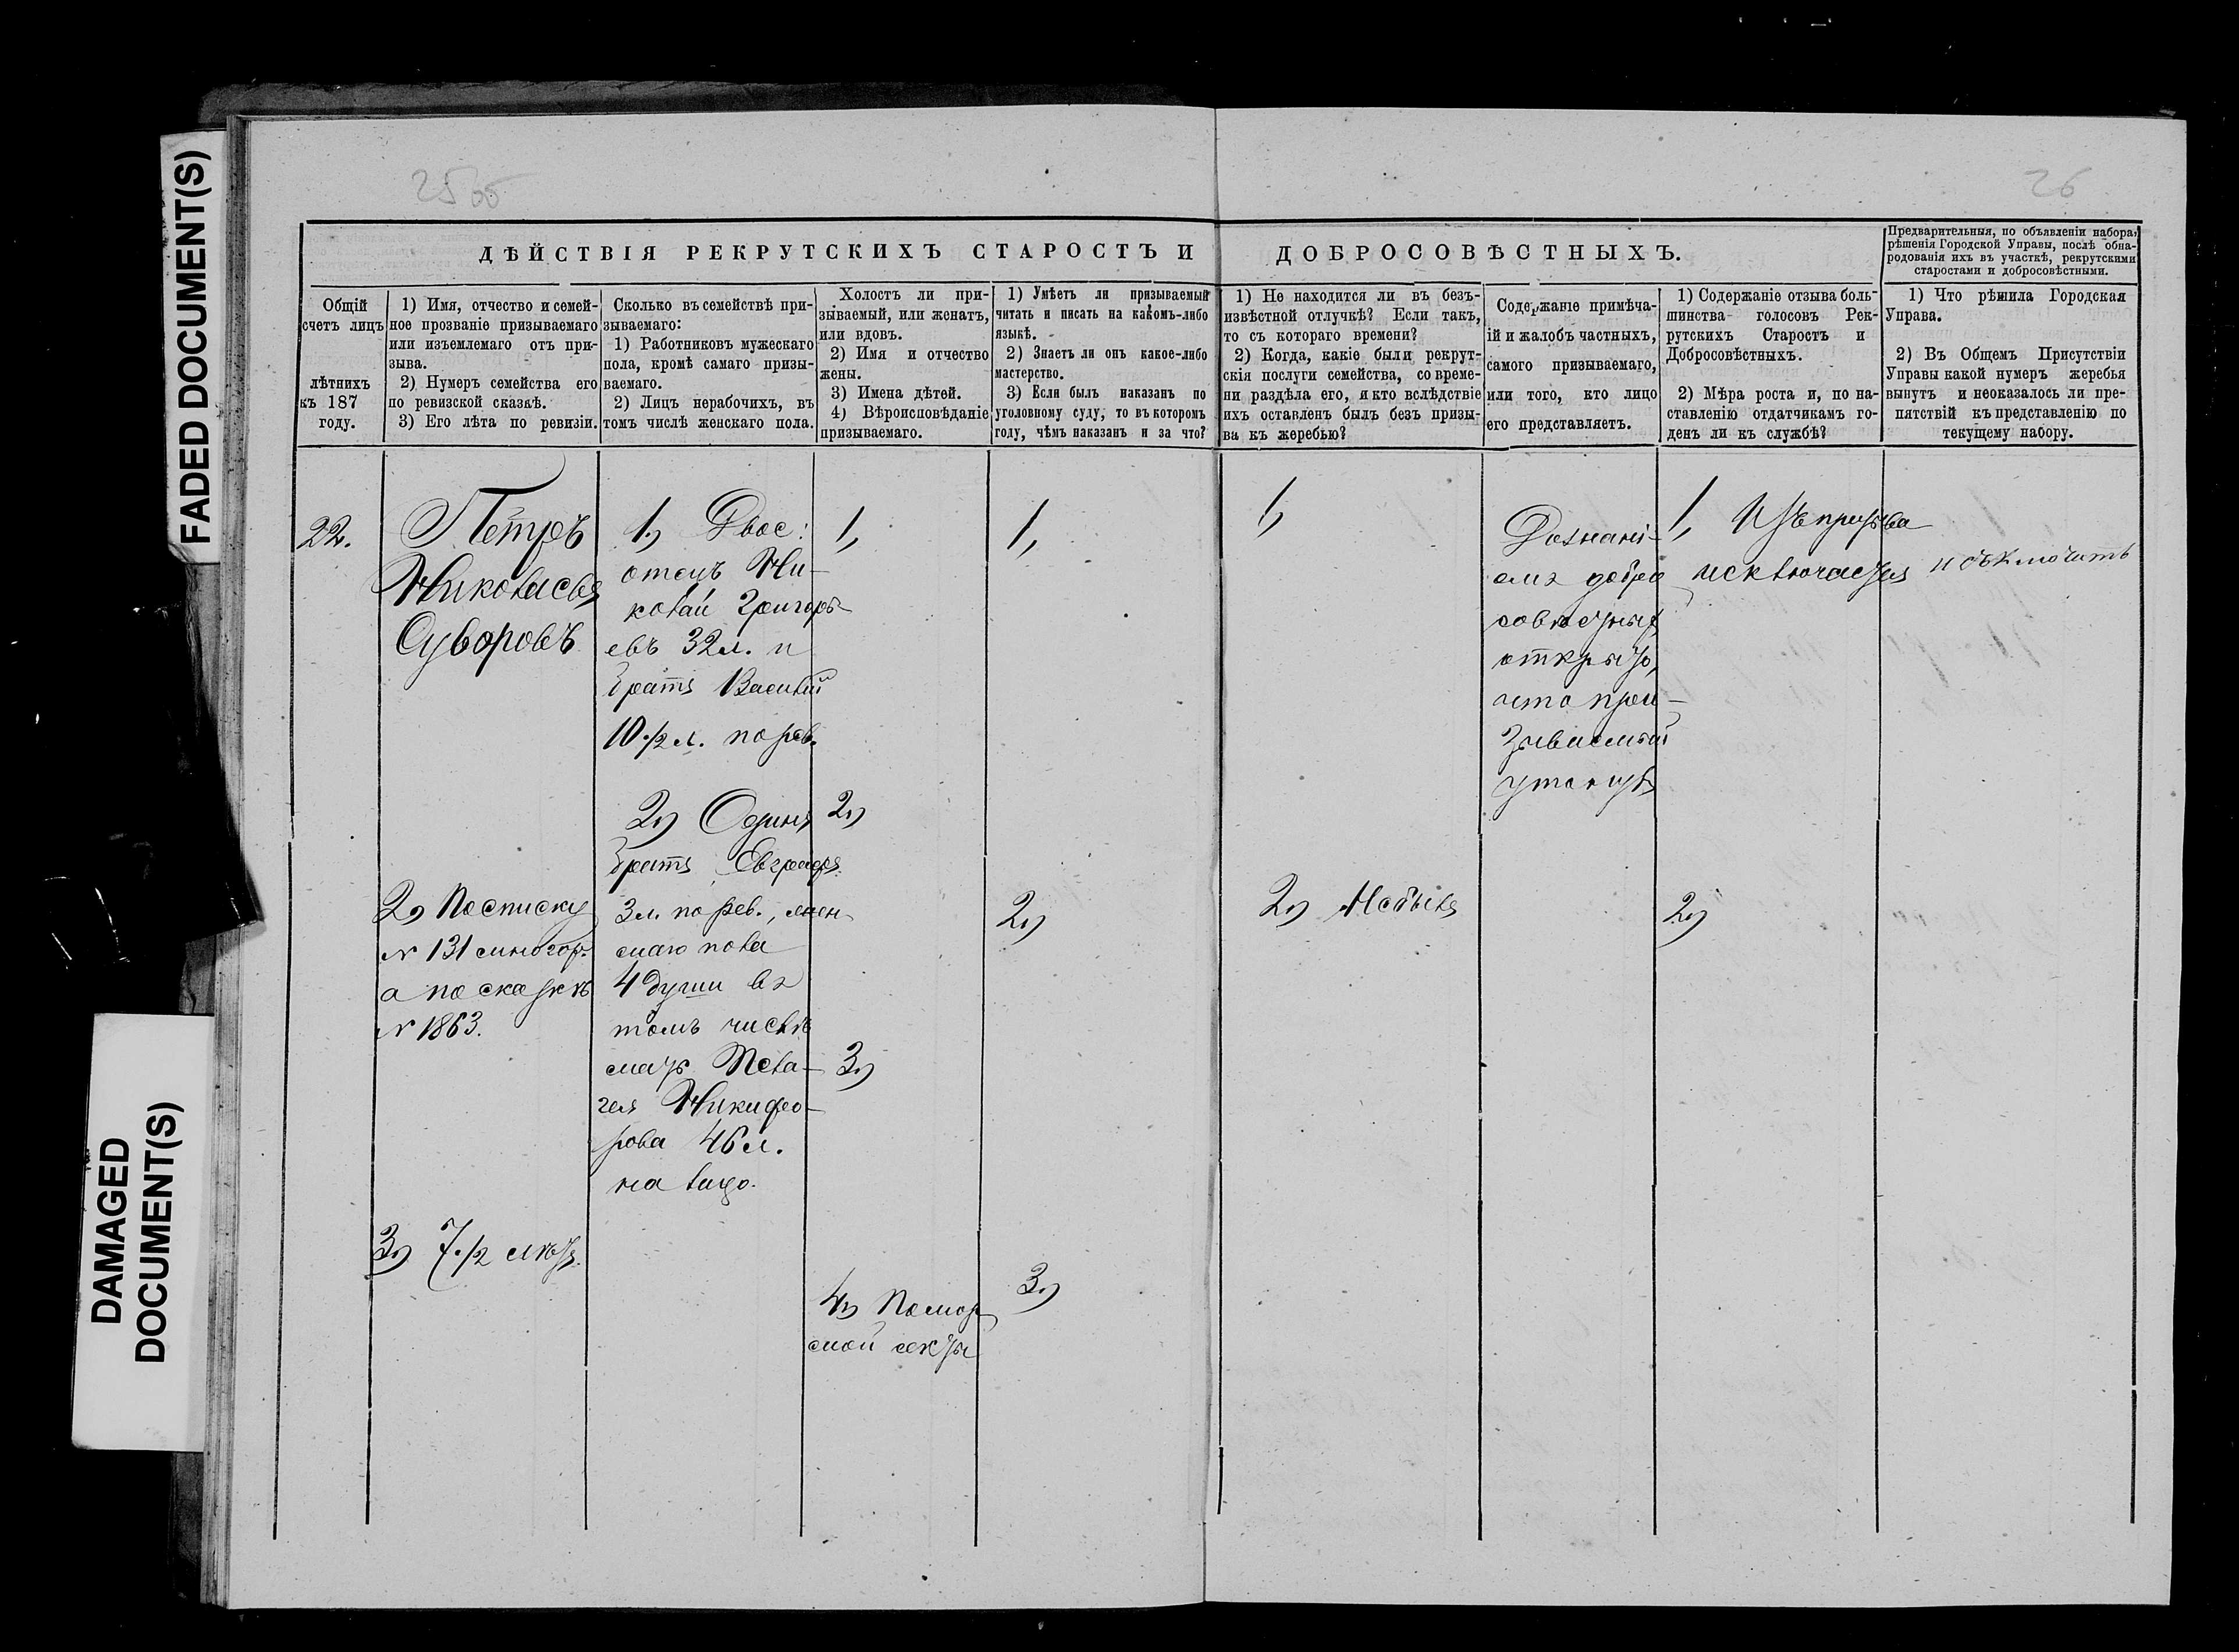 FADED DOCUMENT(S)
DAMAGED
DOCUMENT(S)
25об
26
ДѢЙСТВІЯ РЕКРУТСКИХЪ СТАРОСТЪ И ДОБРОСОВѢСТНЫХЪ.
Предварительныя, по объявленіи набора,
рѣшенія Городской Управы, послѣ обна-
родованія ихъ въ участкѣ, рекрутскими
старостами и добросовѣстными.
Общій
счетъ лицъ
лѣтнихъ
къ 187
году.
1) Имя, отчество и семей-
ное прозваніе призываемаго
или изъемлемаго отъ при-
зыва.
2) Нумеръ семейства его
по ревизской сказкѣ.
3) Его лѣта по ревизіи.
Сколько въ семействѣ при-
зываемаго:
1) Работниковъ мужескаго
пола, кромѣ самаго призы-
ваемаго.
2) Лицъ нерабочихъ, въ
томъ числѣ женскаго пола.
Холостъ ли при-
зываемый, или женатъ,
или вдовъ.
2) Имя и отчество
жены.
3) Имена дѣтей.
4) Вѣроисповѣданіе
призываемаго.
1) Умѣетъ ли призываемый
читать и писать на какомъ-либо
языкѣ.
2) Знаетъ ли онъ какое-либо
мастерство.
3) Если былъ наказанъ по
уголовному суду, то въ которомъ
году, чѣмъ наказанъ и за что?
1) Не находится ли въ безъ-
извѣстной отлучкѣ? Если такъ,
то съ котораго времени?
2) Когда, какіе были рекрут-
скія послуги семейства, со време-
ни раздѣла его, и кто вслѣдствіе
ихъ оставленъ былъ безъ призы-
ва къ жеребью?
Содержаніе примѣча-
ій и жалобъ частныхъ,
самого призываемаго,
или того, кто лицо
его представляетъ.
1) Содержаніе отзыва боль-
шинства голосовъ Рек-
рутскихъ Старостъ и
Добросовѣстныхъ.
2) Мѣра роста и, по на-
ставленію отдатчикамъ го-
денъ ли къ службѣ?
1) Что рѣшила Городская
Управа.
2) Въ Общемъ Присутствіи
Управы какой нумеръ жеребья
вынутъ и неоказалось ли пре-
пятствій къ представленію по
текущему набору.
22.
Петръ
Николаевъ
Суворовъ
2) По списку
№ 131 иногор.
а по сказкѣ
№ 1863.
3) 7 1/2 лѣтъ.
1) Двое:
отецъ Ни-
колай Григорь-
евъ 32 л. и
братъ Василій
10 1/2 л. по рев.
2) Одинъ
братъ Евграфъ
3 л. по рев., жен-
скаго пола
4 души въ
томъ числѣ
мать Пела-
гея Никифо-
рова 46 л.
на лицо.
1,
2)
3)
4) Помор-
ской секты
1,
2)
3)
1,
2) Небыло
Дознані-
емъ добро
совѣстныхъ
открыто,
что при-
зываемый
утонулъ
1, Изъ призыва
исключается
2)
исключить